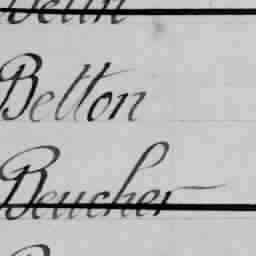 Belton
Beucher